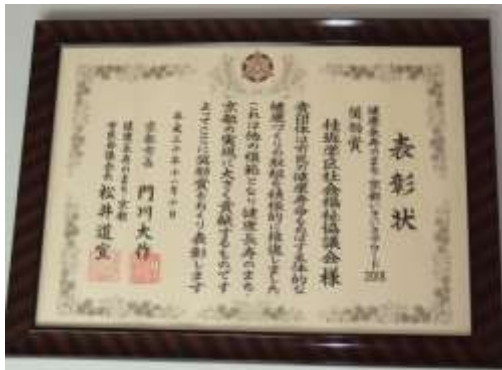 表彰状
健康長寿のまち・京都いきいきアワード2018
奨励賞
桂坂学区社会福祉協議会様
貴団体は市民の健康寿命をのばす主体的な
健康づくりの取組を積極的に推進しました
これは他の模範となり健康長寿のまち
京都の実現に大きく貢献するものです
よってここに奨励賞をおくり表彰します
平成三十年十一月十日
京都市長 門川大作
健康長寿のまち・京都
市民会議会長 松井道宣